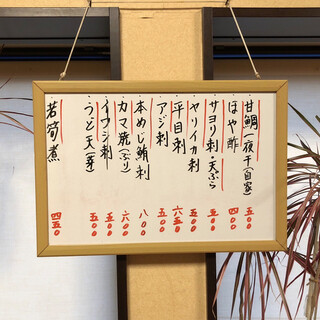 ・甘鯛一夜干(自家) 五〇〇
・ほや酢 四〇〇
・サヨリ刺・天ぷら 五〇〇
・ヤリイカ刺 五〇〇
・平目刺 六五〇
・アジ刺 五〇〇
・本めじ鮪刺 八〇〇
・カマ焼(ぶり) 六〇〇
・イワシ刺 五〇〇
・うど天(芽) 五〇〇
・若筍煮 四五〇